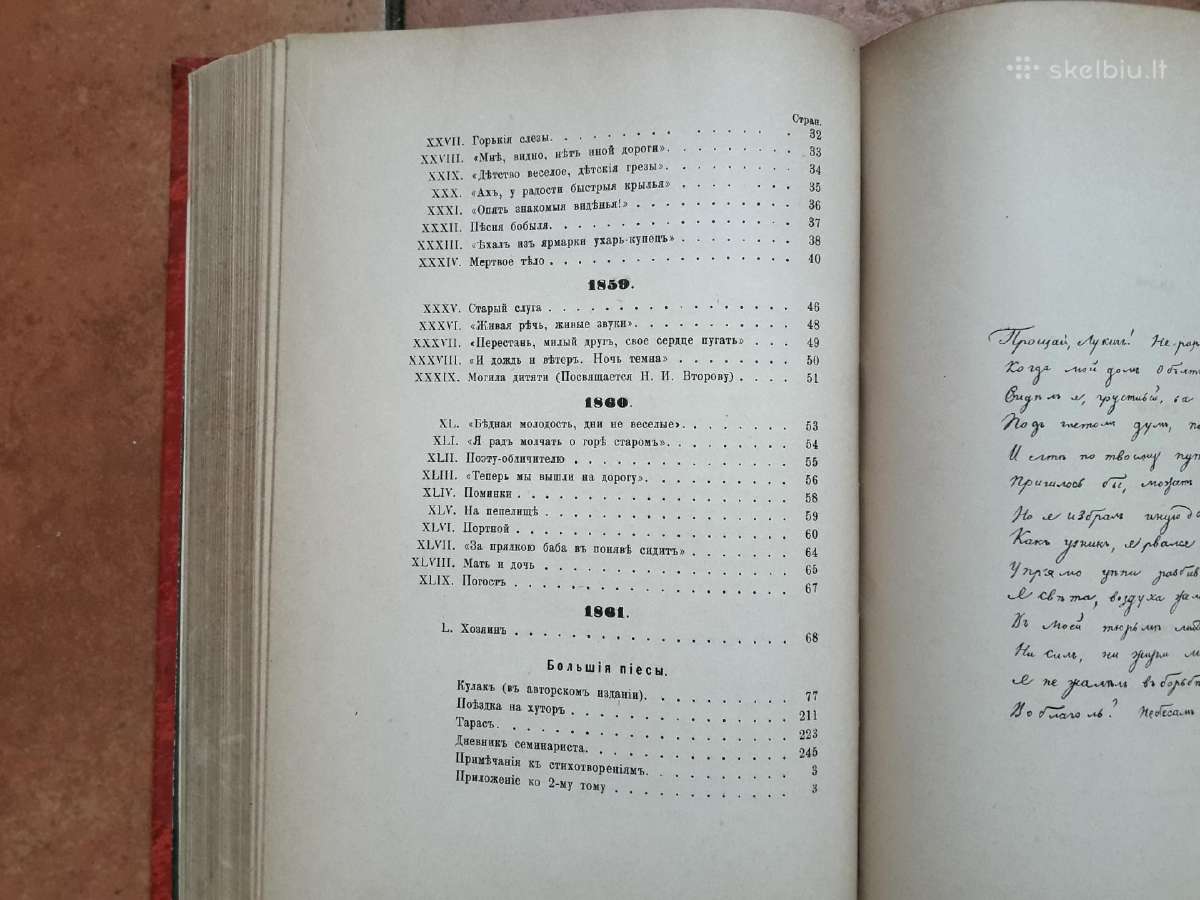 skelbiu.lt
Стран.
XXVII. Горькія слезы. 32
XXVIII. «Мнѣ, видно, нѣтъ иной дороги». 33
XXIX. «Дѣтство веселое, дѣтскія грезы». 34
XXX. «Ахъ, у радости быстрыя крылья» 35
XXXI. «Опять знакомыя видѣнья!» 36
XXXII. Пѣсня бобыля. 37
XXXIII. «Ѣхалъ изъ ярмарки ухарь-купецъ» 38
XXXIV. Мертвое тѣло 40
1859.
XXXV. Старый слуга 46
XXXVI. «Живая рѣчь, живые звуки». 48
XXXVII. «Перестань, милый другъ, свое сердце пугать» 49
XXXVIII. «И дождь и вѣтеръ. Ночь темна» 50
XXXIX. Могила дитяти (Посвящается Н. И. Второву) 51
1860.
XL. «Бѣдная молодость, дни не веселые». 53
XLI. «Я радъ молчать о горѣ старомъ». 54
XLII. Поэту-обличителю 55
XLIII. «Теперь мы вышли на дорогу». 56
XLIV. Поминки 58
XLV. На пепелищѣ 59
XLVI. Портной 60
XLVII. «За прялкою баба въ понявѣ сидитъ» 64
XLVIII. Мать и дочь 65
XLIX. Погостъ 67
1861.
L. Хозяинъ 68
Большія піесы.
Кулакъ (въ авторскомъ изданіи). 77
Поѣздка на хуторъ 211
Тарасъ. 223
Дневникъ семинариста. 245
Примѣчанія къ стихотвореніямъ. 3
Приложеніе ко 2-му тому 3
Прощай, Не
Когда мой домъ
я, грустный, за
Подъ
И по твоему
бы, можетъ
Но я избралъ иную
Какъ узникъ, я рвался
Упрямо цѣпи
Я свѣта, воздуха
Въ моей тюрьмѣ
Ни силъ, ни жизни
Я не жалѣлъ въ
Во благо ль? Небесамъ